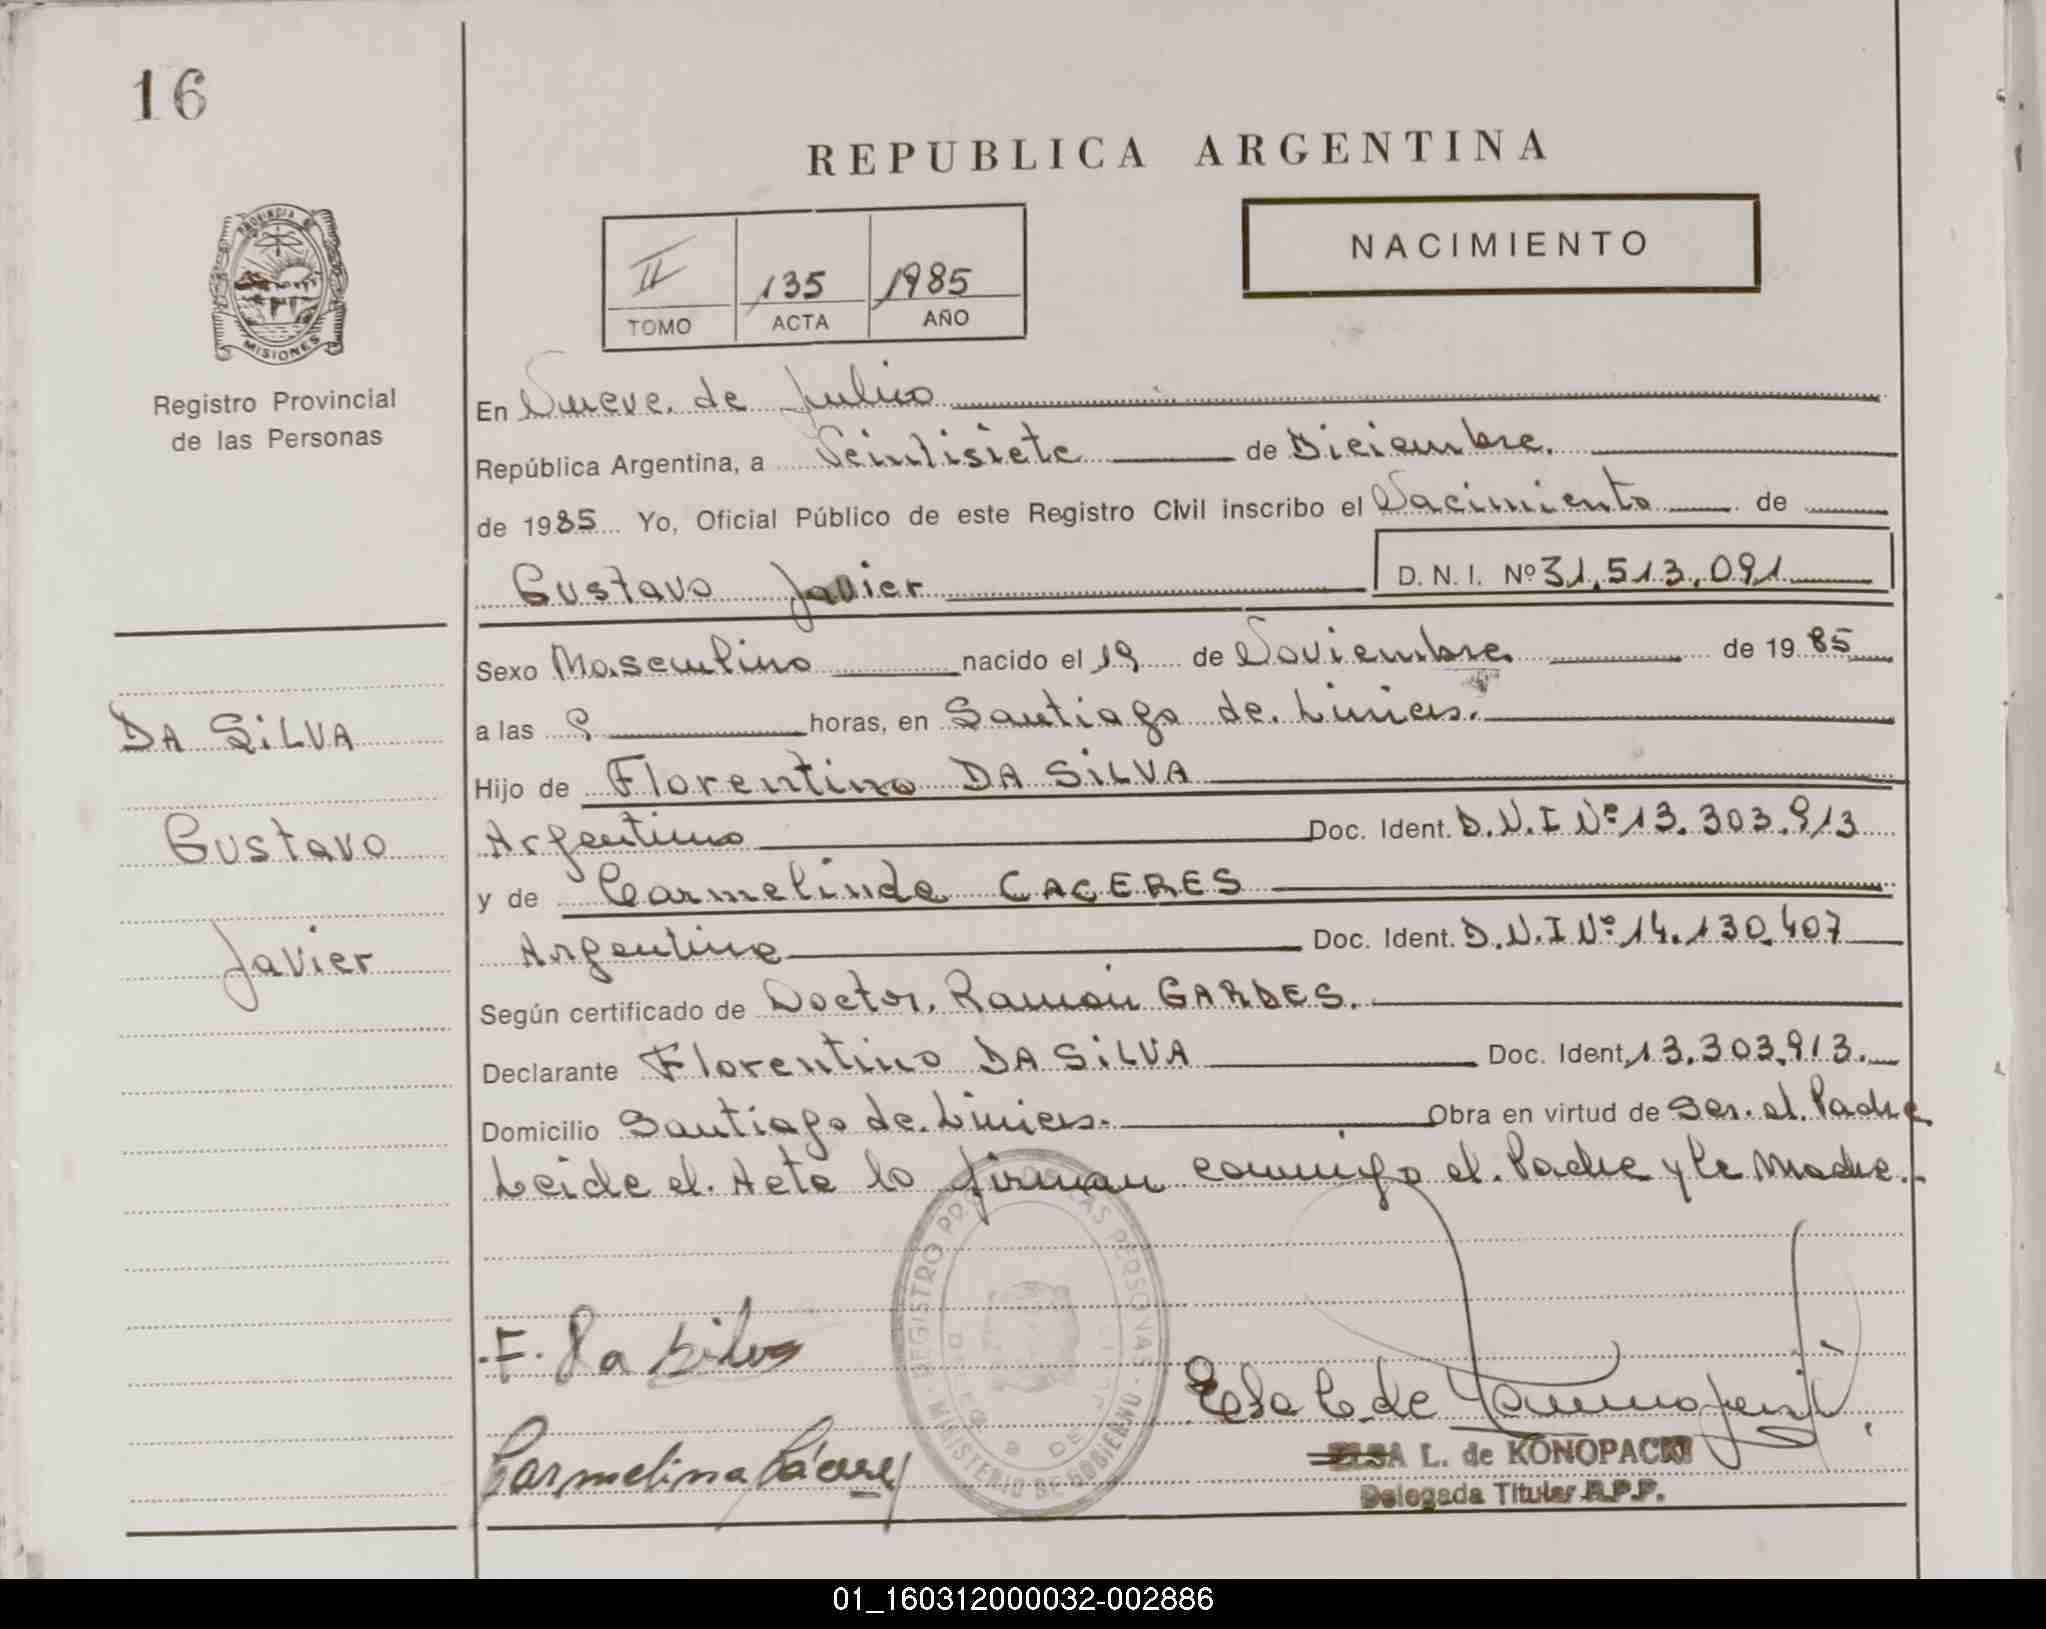 16
REPUBLICA ARGENTINA
PROVINCIA DE
MISIONES
Registro Provincial
de las Personas
NACIMIENTO
II 135 1985
TOMO ACTA AÑO
En Nueve de Julio
República Argentina, a Veintisiete de Diciembre.
de 1985 Yo, Oficial Público de este Registro Civil inscribo el Nacimiento de
Gustavo Javier D. N. I. Nº 31.513.091
Sexo Masculino nacido el 19 de Noviembre de 1985
a las 9 horas, en Santiago de Liniers.
Hijo de Florentino DA SILVA
Argentino Doc. Ident. D.N.I Nº 13.303.913
y de Carmelinda CACERES
Argentina Doc. Ident. D.N.I Nº 14.130.407
Según certificado de Doctor. Ramón GARDES.
Declarante Florentino DA SILVA Doc. Ident. 13.303.913.
Domicilio Santiago de Liniers. Obra en virtud de Ser. el Padre
Leida el Acta lo firman conmigo el Padre y la Madre.
DA SILVA
Gustavo
Javier
F. Da Silva
Carmelina Cáceres
REGISTRO PROVINCIAL DE LAS PERSONAS - MINISTERIO DE GOBIERNO
9 DE JULIO
Elsa L. de Konopacki
ELSA L. de KONOPACKI
Delegada Titular R.P.P.
01_160312000032-002886